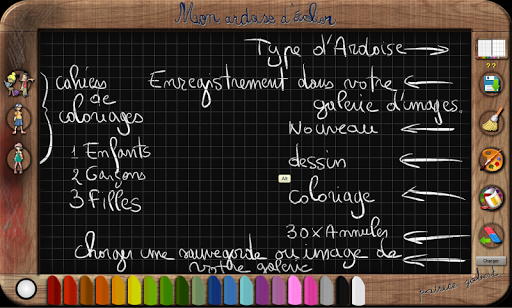 Mon ardoise d'écolier
Type d'Ardoise
Enregistrement dans votre
galerie d'images.
??
cahiers
de
coloriages
Nouveau
1 Enfants
2 Garçons
3 Filles
dessin
Alt
Coloriage
30x Annuler
Charger
Charger une sauvegarde ou image de
votre galerie